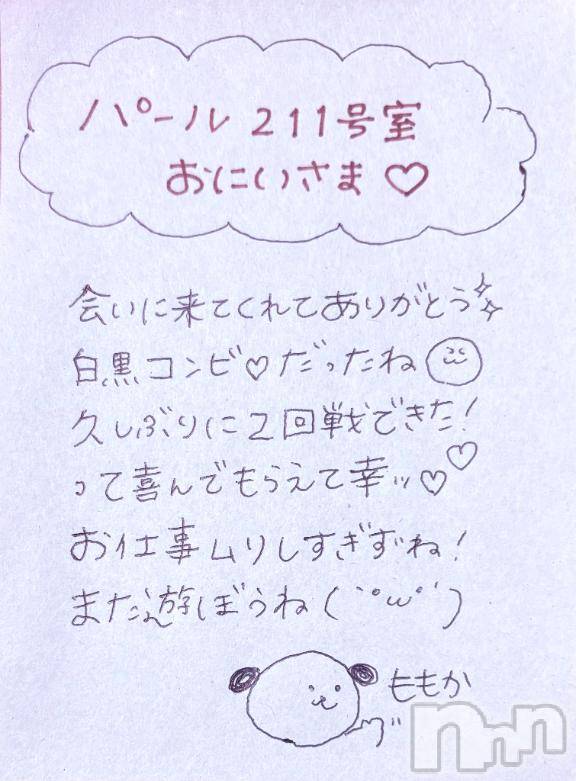 パール 211号室
おにいさま♡
会いに来てくれてありがとう
白黒コンビ♡だったね
久しぶりに2回戦できた!
って喜んでもらえて幸ッ♡♡
お仕事ムリしすぎずね!
また遊ぼうね(´°ω°`)
ももか
nnn